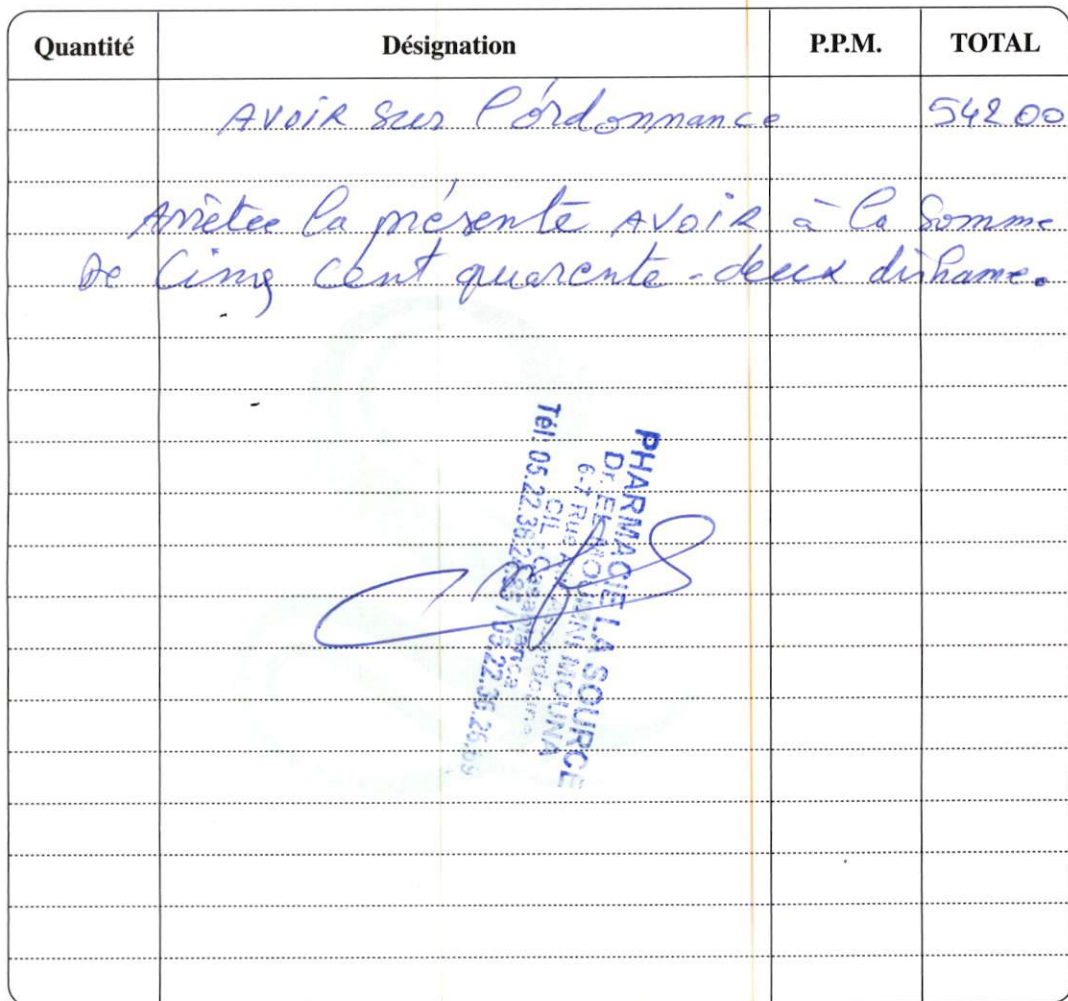 Quantité Désignation P.P.M. TOTAL
AVOIR sur l'ordonnance 542 00
Arrêtée la présente AVOIR à la Somme
De Cinq cent quarente-deux dirhame.
PHARMACIE LA SOURCE
Dr. EL MOUMNI MOUNA
6-7 Rue
CIL - Casablanca
Tél: 05.22.36.26.69